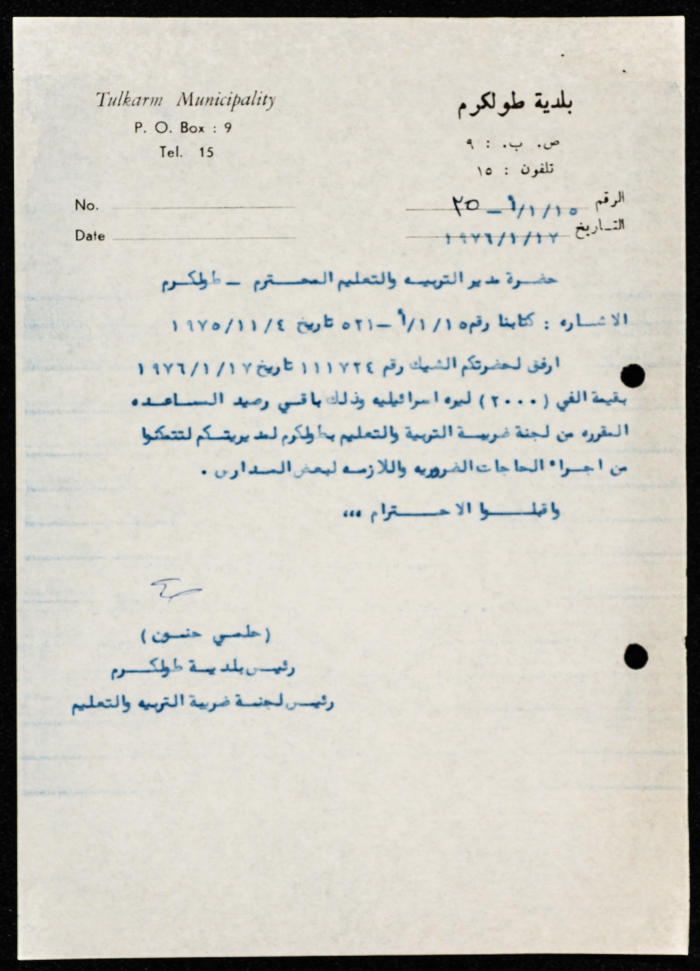 Tulkarm Municipality
P. O. Box : 9
Tel. 15
No.
Date
بلدية طولكرم
ص. ب. : ٩
تلفون : ١٥
الرقم ١٥/١/أ – ٢٥
التـاريخ ١٩٧٦/١/١٧
حضـرة مدير التربيـه والتعليم المحـترم – طولكـرم
الاشـاره : كتابنا رقم ١٥/١/أ – ٥٢١ تاريخ ١٩٧٥/١١/٤
ارفق لحضرتكم الشيك رقم ١١١٧٢٤ تاريخ ١٩٧٦/١/١٧
بقيمة الفي ( ٢٠٠٠ ) ليره اسرائيليه وذلك باقـي رصيد المسـاعـده
المقرره من لجنة ضريبـة التربية والتعليم بطولكرم لمديريتـكم لتتمكنوا
من اجـراء الحاجات الضروريه واللازمـه لبعض المـدارس .
واقبلـوا الاحـترام ...
( حلمـي حنـون )
رئيس بلديـة طولكـرم
رئيـس لجنـة ضريبة التربيه والتعليم